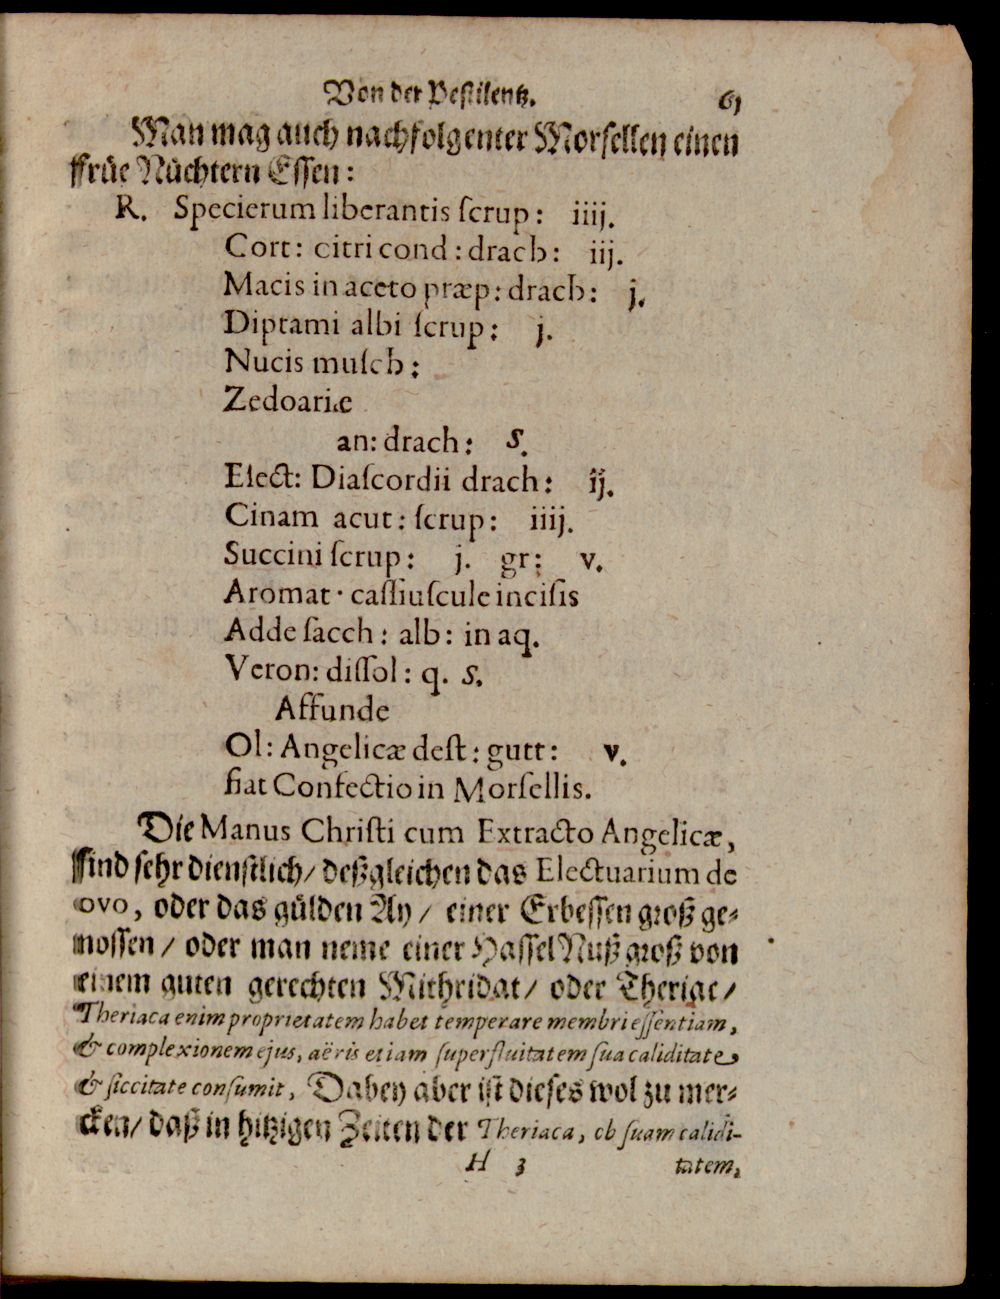 Von der Pestilentz. 61
Man mag auch nachfolgenter Morsellen einen
früe Nüchtern Essen:
R. Specierum liberantis ſcrup: iiij.
Cort: citri cond: drach: iij.
Macis in aceto præp: drach: j.
Diptami albi ſcrup: j.
Nucis muſch:
Zedoariæ
an: drach: s.
Elect: Diaſcordii drach: ij.
Cinam acut: ſcrup: iiij.
Succini ſcrup: j. gr: v.
Aromat· caſſiuſcule inciſis
Adde ſacch: alb: in aq.
Veron: diſſol: q. s.
Affunde
Ol: Angelicæ deſt: gutt: v.
fiat Confectio in Morſellis.
Die Manus Chriſti cum Extracto Angelicæ,
ſind ſehr dienſtlich/ deßgleichen das Electuarium de
ovo, oder das gülden Ay/ einer Erbeſſen groß ge⸗
noſſen/ oder man neme einer Haſſel Nuß groß von
einem guten gerechten Mithridat/ oder Theriac/
Theriaca enim proprietatem habet temperare membri eſſentiam,
& complexionem ejus, aëris etiam ſuperfluitatem ſua caliditate
& ſiccitate conſumit, Dabey aber iſt dieſes wol zu mer⸗
cken/ daß in hitzigen Zeiten der Theriaca, ob ſuam calidi-
H 3 tatem,